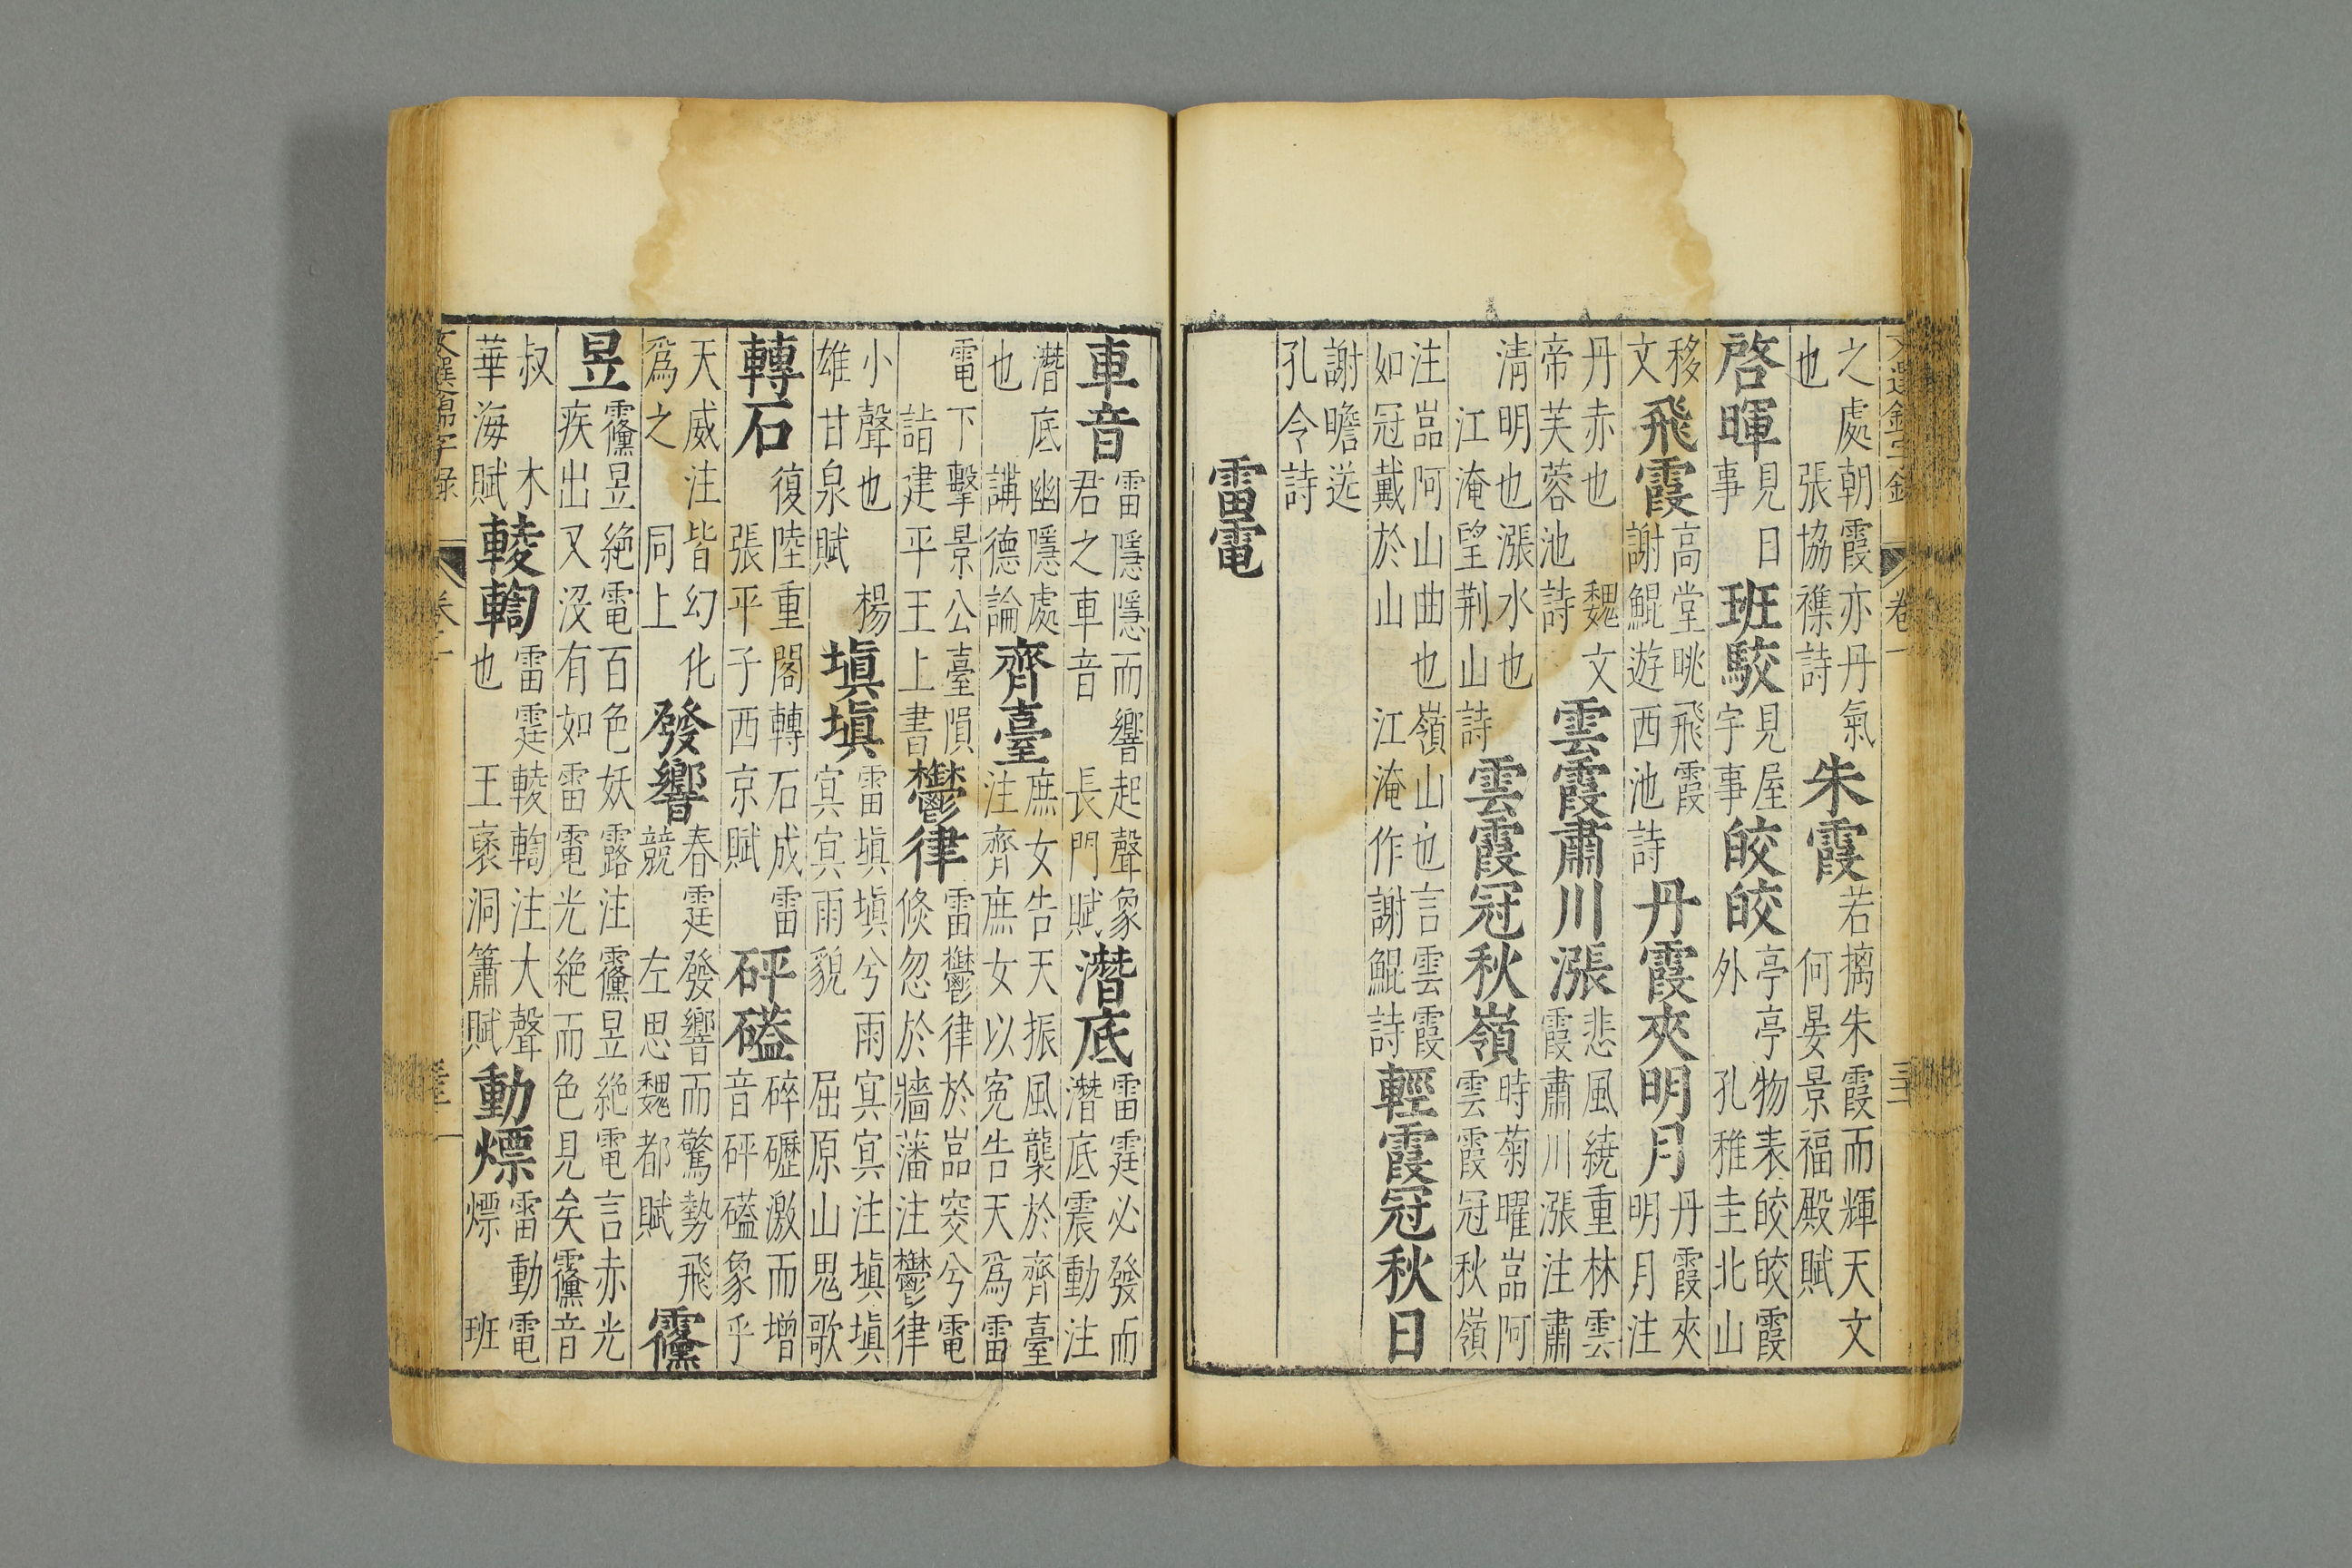 文選錦字錄 卷一 三十
之處朝霞亦丹氣也 張協襍詩 朱霞 若摛朱霞而輝天文 何晏景福殿賦
啓暉 見日事 班駮 見屋宇事 皎皎 亭亭物表皎皎霞外 孔稚圭北山
移文 飛霞 高堂眺飛霞 謝鯤遊西池詩 丹霞夾明月 丹霞夾明月注
丹赤也 魏文帝芙蓉池詩 雲霞肅川漲 悲風繞重林雲霞肅川漲注肅
清明也漲水也 江淹望荆山詩 雲霞冠秋嶺 時菊曜嵓阿雲霞冠秋嶺
注嵓阿山曲也嶺山也言雲霞如冠戴於山 江淹作謝鯤詩 輕霞冠秋日
謝瞻送孔令詩
雷電
車音 雷隱隱而響起聲象君之車音 長門賦 潛底 雷霆必發而潛底震動注
潛底幽隱處也 講德論 齊臺 庶女告天振風襲於齊臺注齊庶女以寃告天爲雷
電下擊景公臺隕 詣建平王上書 鬱律 雷鬱律於嵓窔兮電倏忽於牆藩注鬱律
小聲也 楊雄甘泉賦 塡塡 雷塡塡兮雨㝠㝠注塡塡㝠㝠雨貌 屈原山鬼歌
轉石 復陸重閣轉石成雷 張平子西京賦 砰磕 碎礰激而增音砰磕象乎
天威注皆幻化爲之 同上 發響 春霆發響而驚勢飛競 左思魏都賦 䨴
昱 䨴昱絶電百色妖露注䨴昱絶電言赤光疾出又没有如雷電光絶而色見矣䨴音
叔 木華海賦 輘輷 雷霆輘輷注大聲也 王褒洞簫賦 動熛 雷動電熛 班